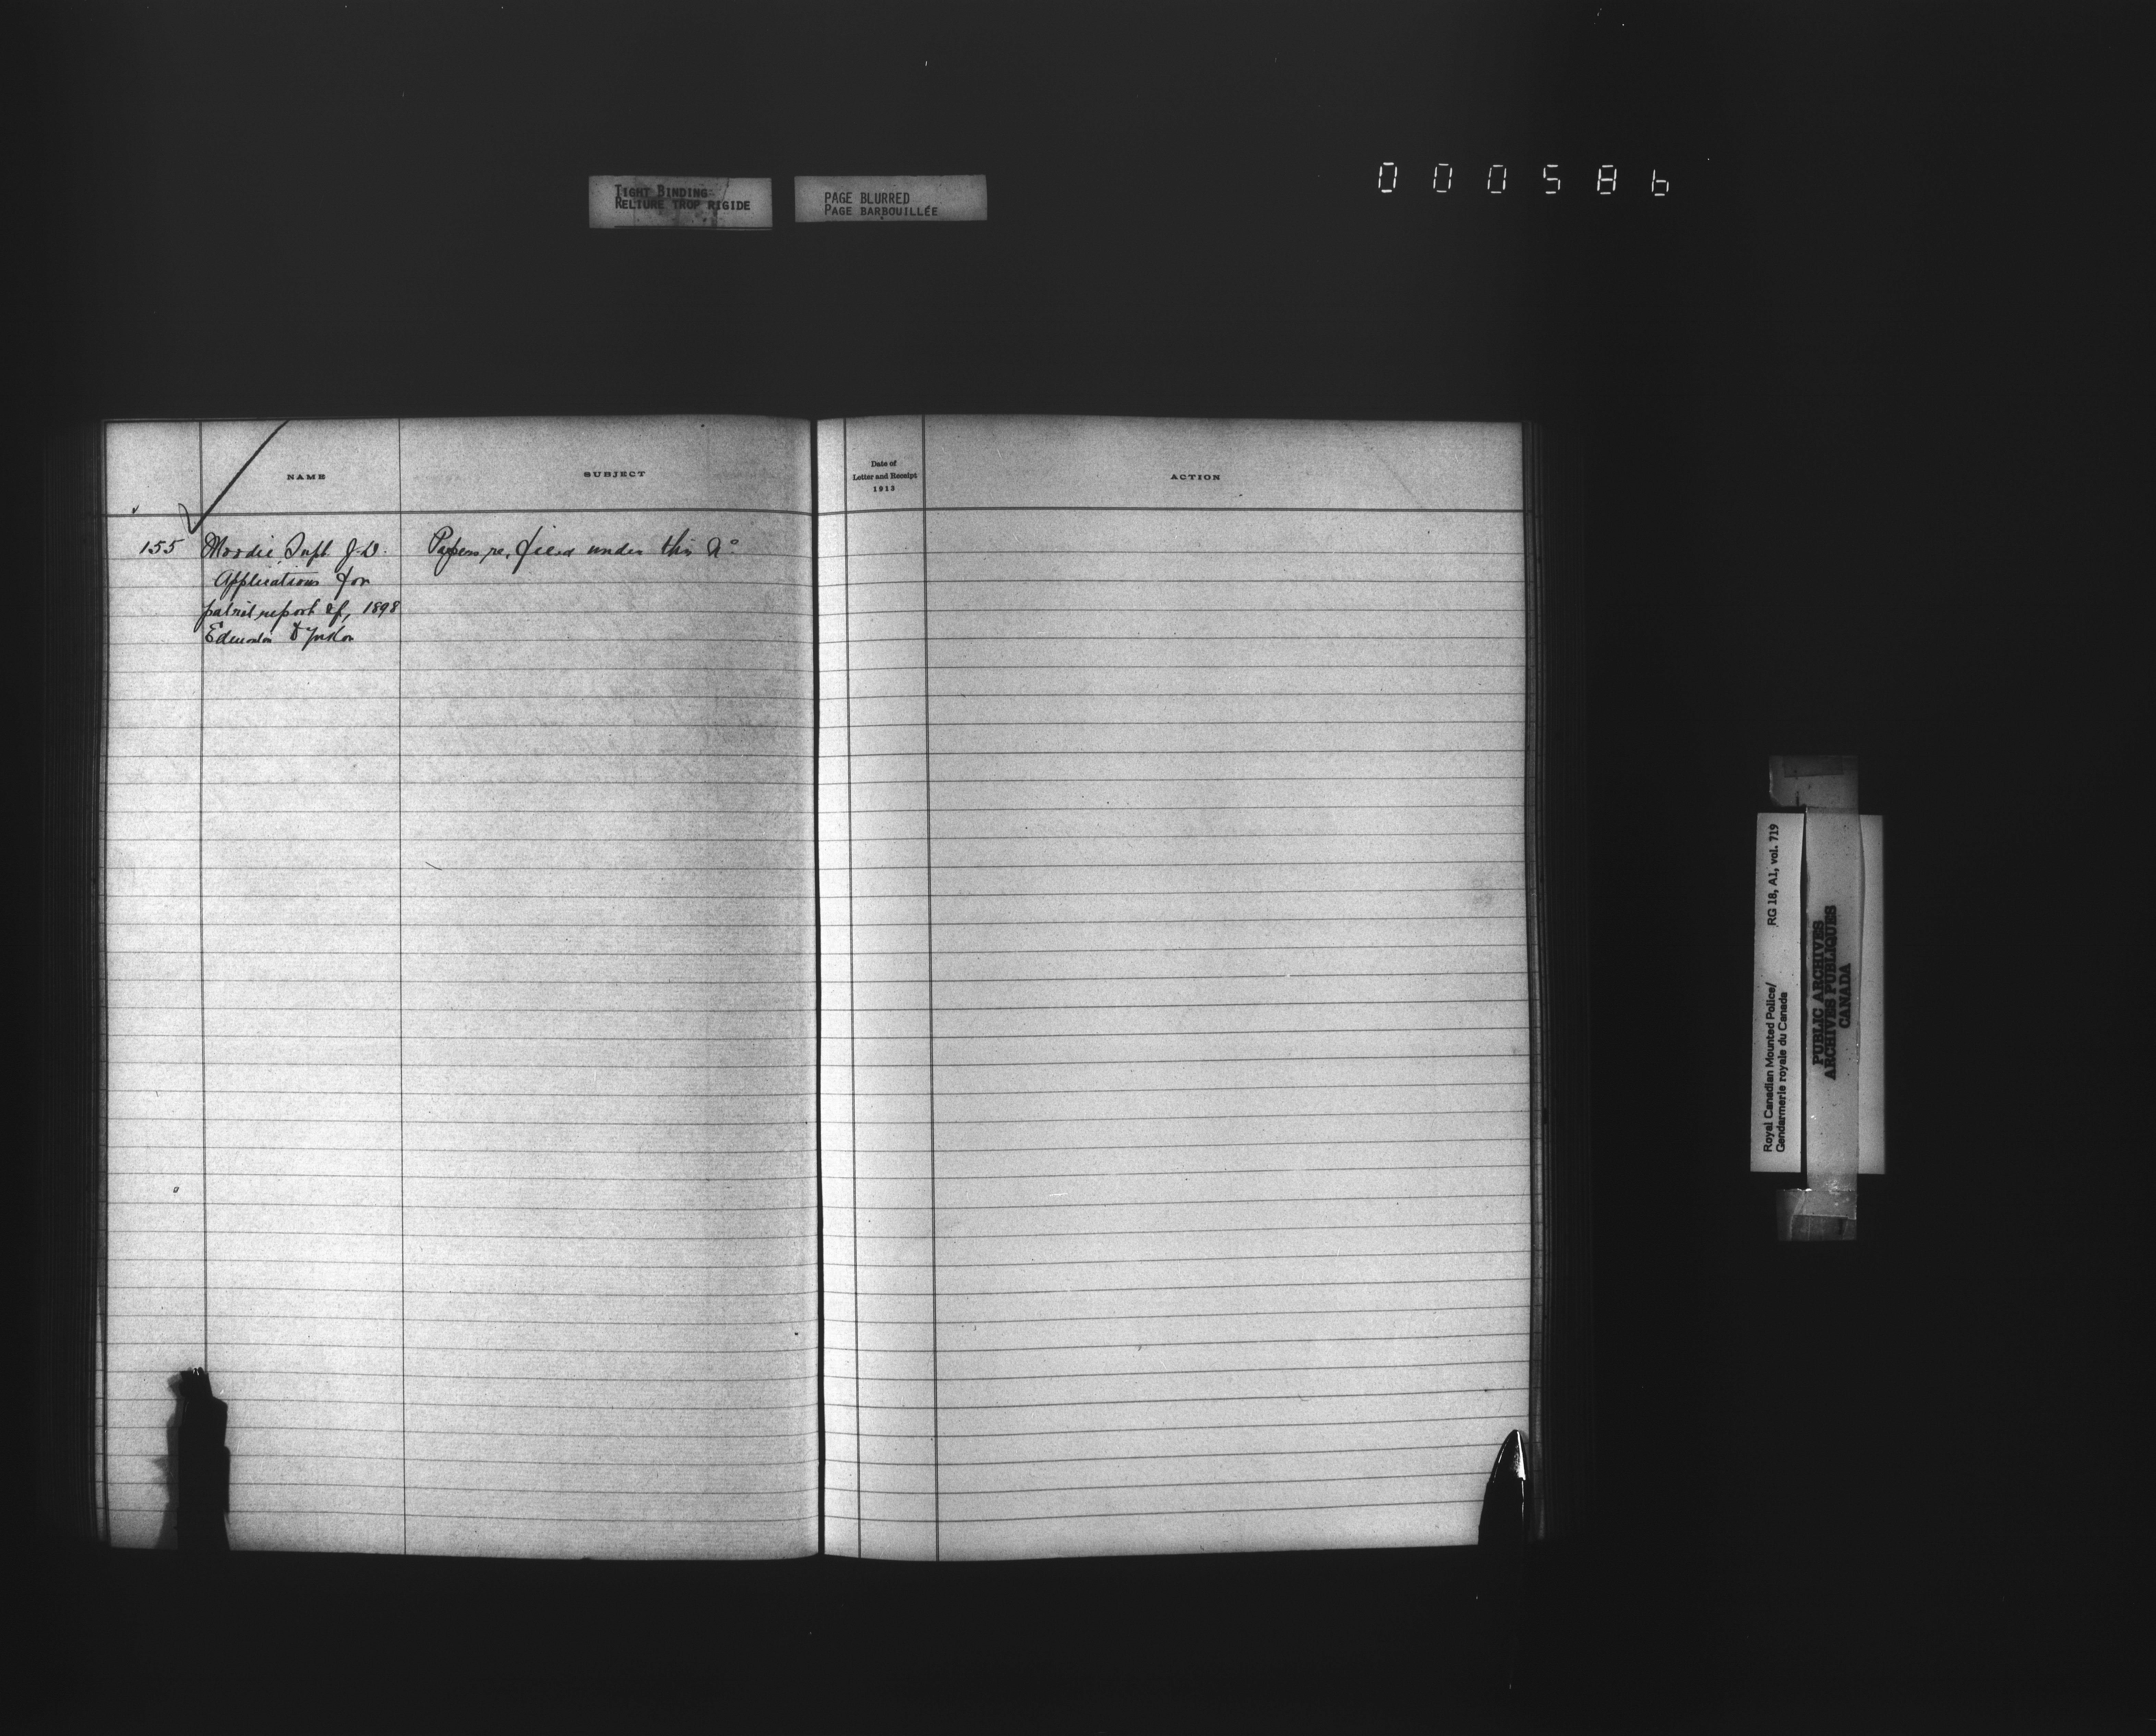 TIGHT BINDING
RELIURE TROP RIGIDE
PAGE BLURRED
PAGE BARBOUILLÉE
000586
NAME
SUBJECT
Date of
Letter and Receipt
1913
ACTION
155 Moodie Supt. J.D. Papers re, filed under this No
Applications for
patrol report of, 1898
Edmonton to Yukon
Royal Canadian Mounted Police/ RG 18, A1, vol. 719
Gendarmerie royale du Canada
PUBLIC ARCHIVES
ARCHIVES PUBLIQUES
CANADA